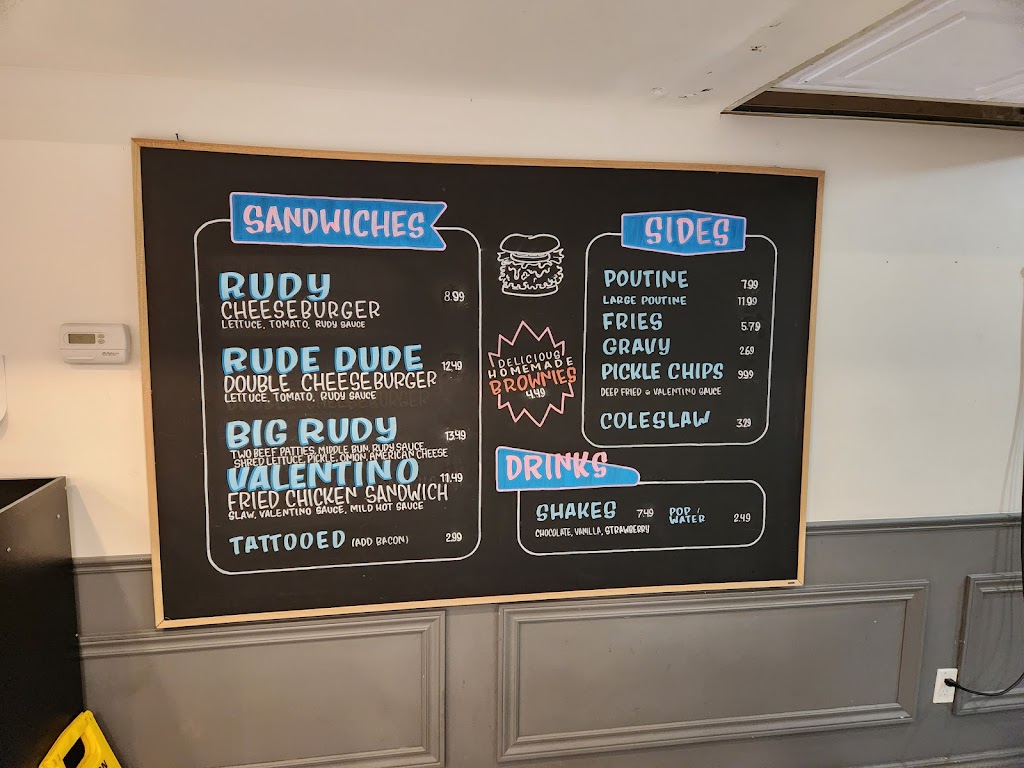 SANDWICHES
RUDY
CHEESEBURGER 8.99
LETTUCE, TOMATO, RUDY SAUCE
RUDE DUDE 12.49
DOUBLE CHEESEBURGER
LETTUCE, TOMATO, RUDY SAUCE
BIG RUDY 13.49
TWO BEEF PATTIES, MIDDLE BUN, RUDY SAUCE,
SHRED LETTUCE, PICKLE, ONION, AMERICAN CHEESE
VALENTINO 11.49
FRIED CHICKEN SANDWICH
SLAW, VALENTINO SAUCE, MILD HOT SAUCE
TATTOOED (ADD BACON) 2.99
DELICIOUS
HOMEMADE
BROWNIES
4.49
SIDES
POUTINE 7.99
LARGE POUTINE 11.99
FRIES 5.79
GRAVY 2.69
PICKLE CHIPS 9.99
DEEP FRIED & VALENTINO SAUCE
COLESLAW 3.29
DRINKS
SHAKES 7.49
CHOCOLATE, VANILLA, STRAWBERRY
POP /
WATER 2.49